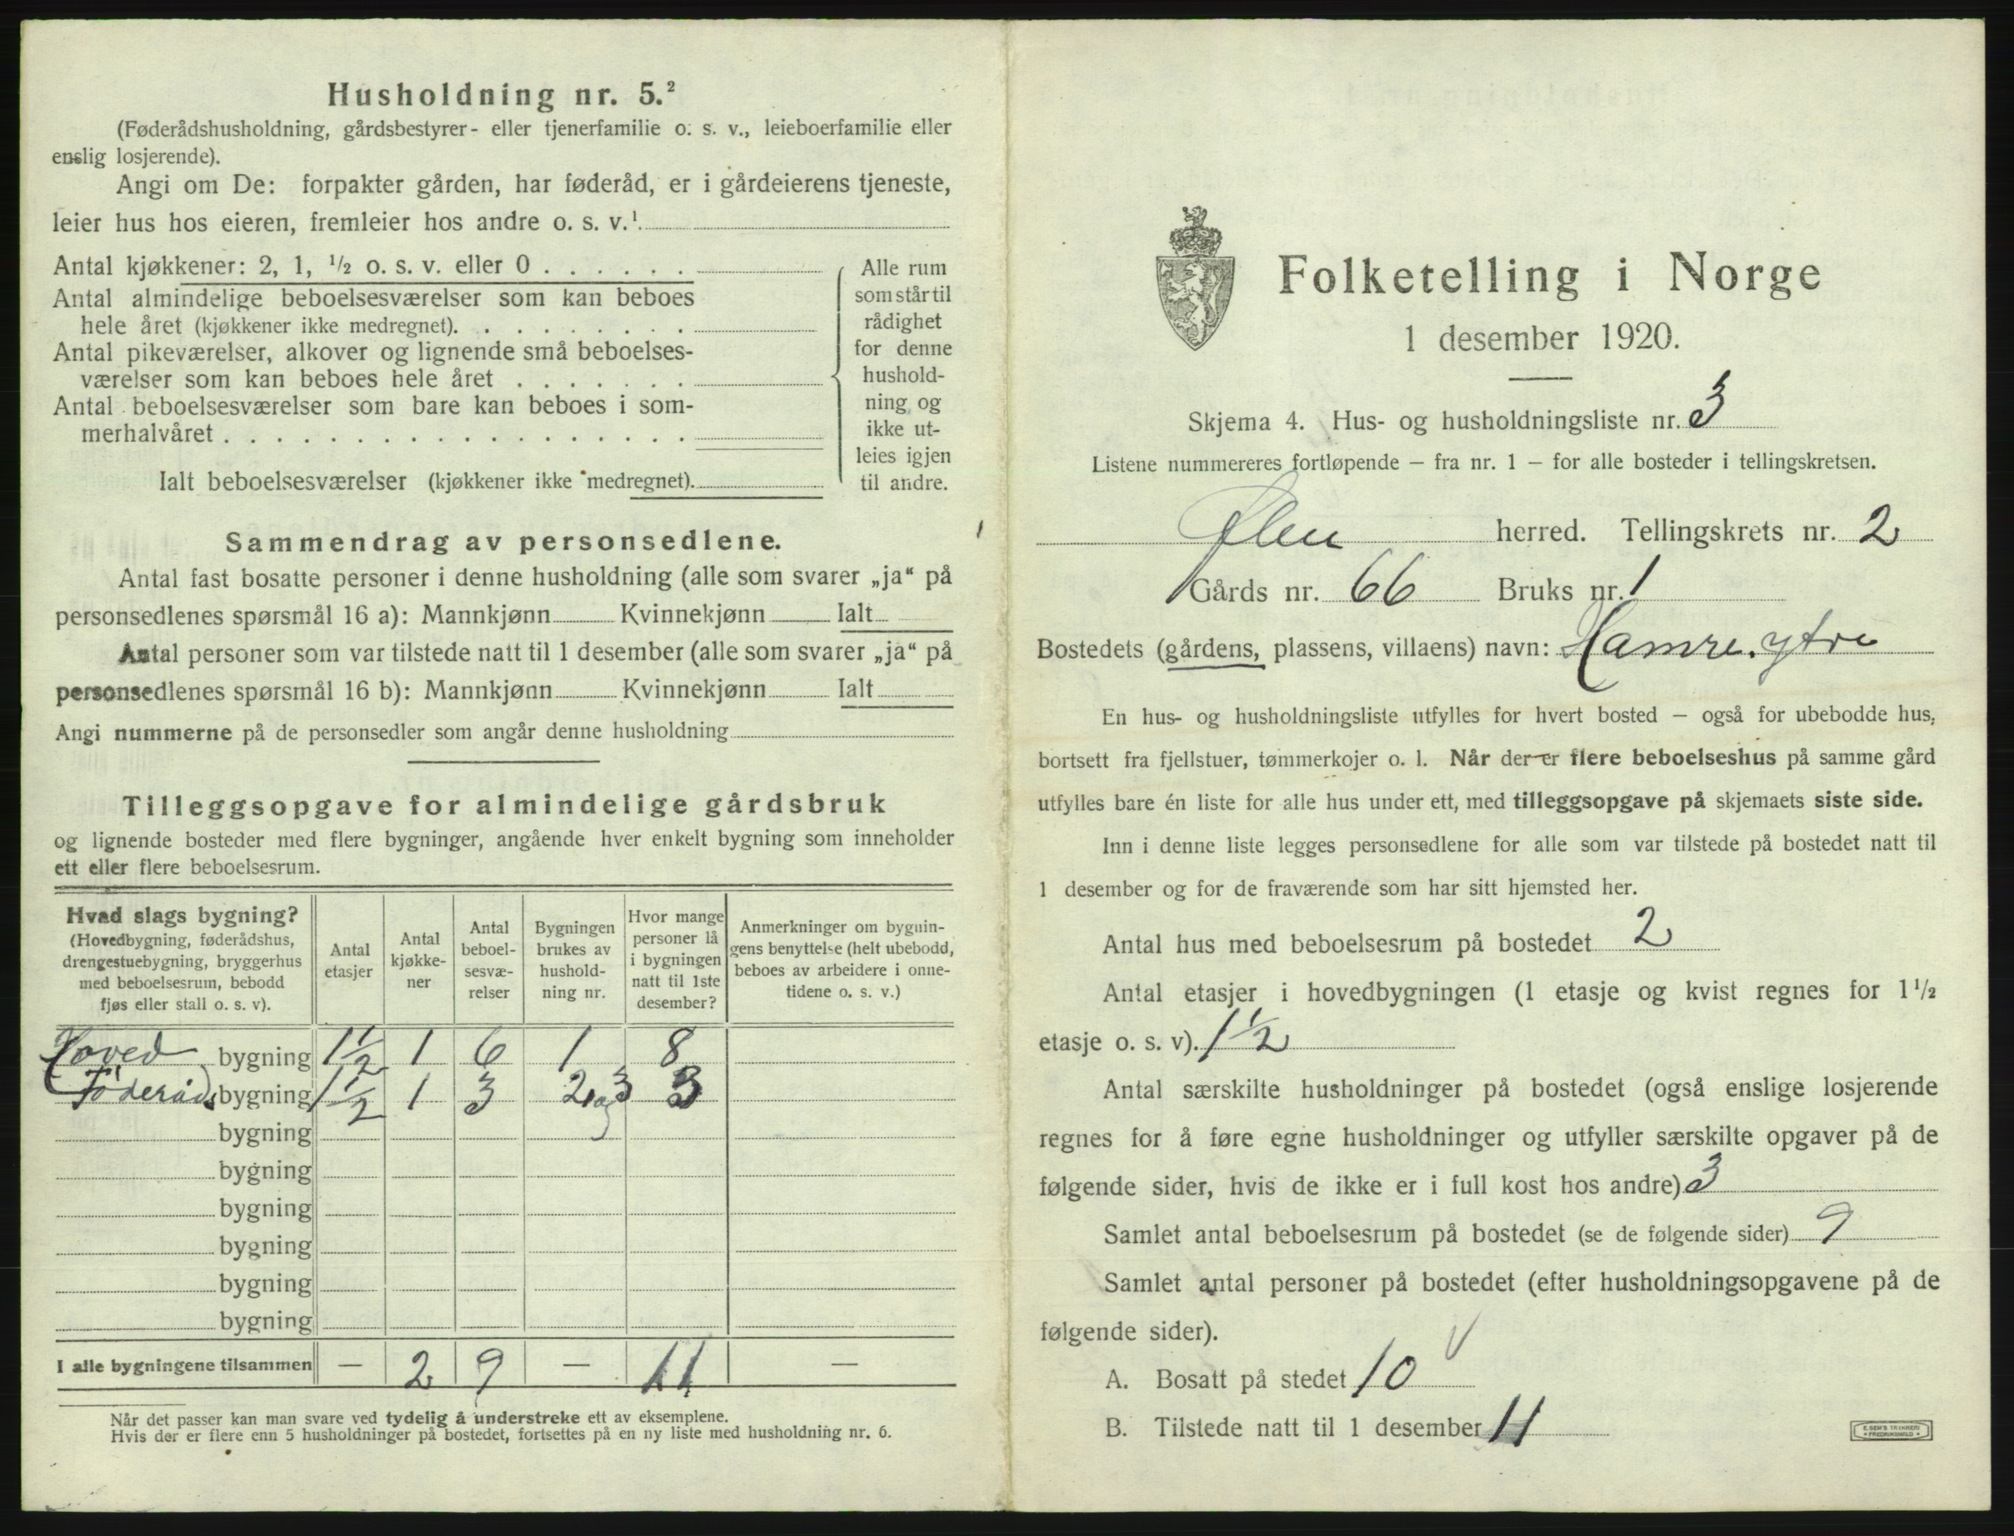 Husholdning nr. 5.²
(Føderådshusholdning, gårdsbestyrer- eller tjenerfamilie o. s. v., leieboerfamilie eller
enslig losjerende).
Angi om De: forpakter gården, har føderåd, er i gårdeierens tjeneste,
leier hus hos eieren, fremleier hos andre o. s. v.¹
Antal kjøkkener: 2, 1, ½ o. s. v. eller 0
Antal almindelige beboelsesværelser som kan beboes
hele året (kjøkkener ikke medregnet).
Antal pikeværelser, alkover og lignende små beboelses-
værelser som kan beboes hele året
Antal beboelsesværelser som bare kan beboes i som-
merhalvåret
Ialt beboelsesværelser (kjøkkener ikke medregnet).
Alle rum
som står til
rådighet
for denne
hushold-
ning og
ikke ut-
leies igjen
til andre.
Sammendrag av personsedlene.
Antal fast bosatte personer i denne husholdning (alle som svarer „ja“ på
personsedlenes spørsmål 16 a): Mannkjønn Kvinnekjønn Ialt
Antal personer som var tilstede natt til 1 desember (alle som svarer „ja“ på
personsedlenes spørsmål 16 b): Mannkjønn Kvinnekjønn Ialt
Angi nummerne på de personsedler som angår denne husholdning
Tilleggsopgave for almindelige gårdsbruk
og lignende bosteder med flere bygninger, angående hver enkelt bygning som inneholder
ett eller flere beboelsesrum.
Hvad slags bygning?
(Hovedbygning, føderådshus,
drengestuebygning, bryggerhus
med beboelsesrum, bebodd
fjøs eller stall o. s. v).
Antal
etasjer
Antal
kjøkke-
ner
Antal
beboel-
sesvæ-
relser
Bygningen
brukes av
hushold-
ning nr.
Hvor mange
personer lå
i bygningen
natt til 1ste
desember?
Anmerkninger om bygnin-
gens benyttelse (helt ubebodd,
beboes av arbeidere i onne-
tidene o. s. v.)
Hoved bygning 1½ 1 6 1 8
Føderåds bygning 1½ 1 3 2 og 3 3
bygning
bygning
bygning
bygning
bygning
bygning
I alle bygningene tilsammen — 2 9 — 11 —
Når det passer kan man svare ved tydelig å understreke ett av eksemplene.
Hvis der er flere enn 5 husholdninger på bostedet, fortsettes på en ny liste med husholdning nr. 6.
Folketelling i Norge
1 desember 1920.
Skjema 4. Hus- og husholdningsliste nr. 3
Listene nummereres fortløpende — fra nr. 1 — for alle bosteder i tellingskretsen.
Ølen herred. Tellingskrets nr. 2
Gårds nr. 66 Bruks nr. 1
Bostedets (gårdens, plassens, villaens) navn: Hamre. ytre
En hus- og husholdningsliste utfylles for hvert bosted — også for ubebodde hus,
bortsett fra fjellstuer, tømmerkojer o. l. Når der er flere beboelseshus på samme gård
utfylles bare én liste for alle hus under ett, med tilleggsopgave på skjemaets siste side.
Inn i denne liste legges personsedlene for alle som var tilstede på bostedet natt til
1 desember og for de fraværende som har sitt hjemsted her.
Antal hus med beboelsesrum på bostedet 2
Antal etasjer i hovedbygningen (1 etasje og kvist regnes for 1½
etasje o. s. v). 1½
Antal særskilte husholdninger på bostedet (også enslige losjerende
regnes for å føre egne husholdninger og utfyller særskilte opgaver på de
følgende sider, hvis de ikke er i full kost hos andre) 3
Samlet antal beboelsesrum på bostedet (se de følgende sider) 9
Samlet antal personer på bostedet (efter husholdningsopgavene på de
følgende sider).
A. Bosatt på stedet 10
B. Tilstede natt til 1 desember 11